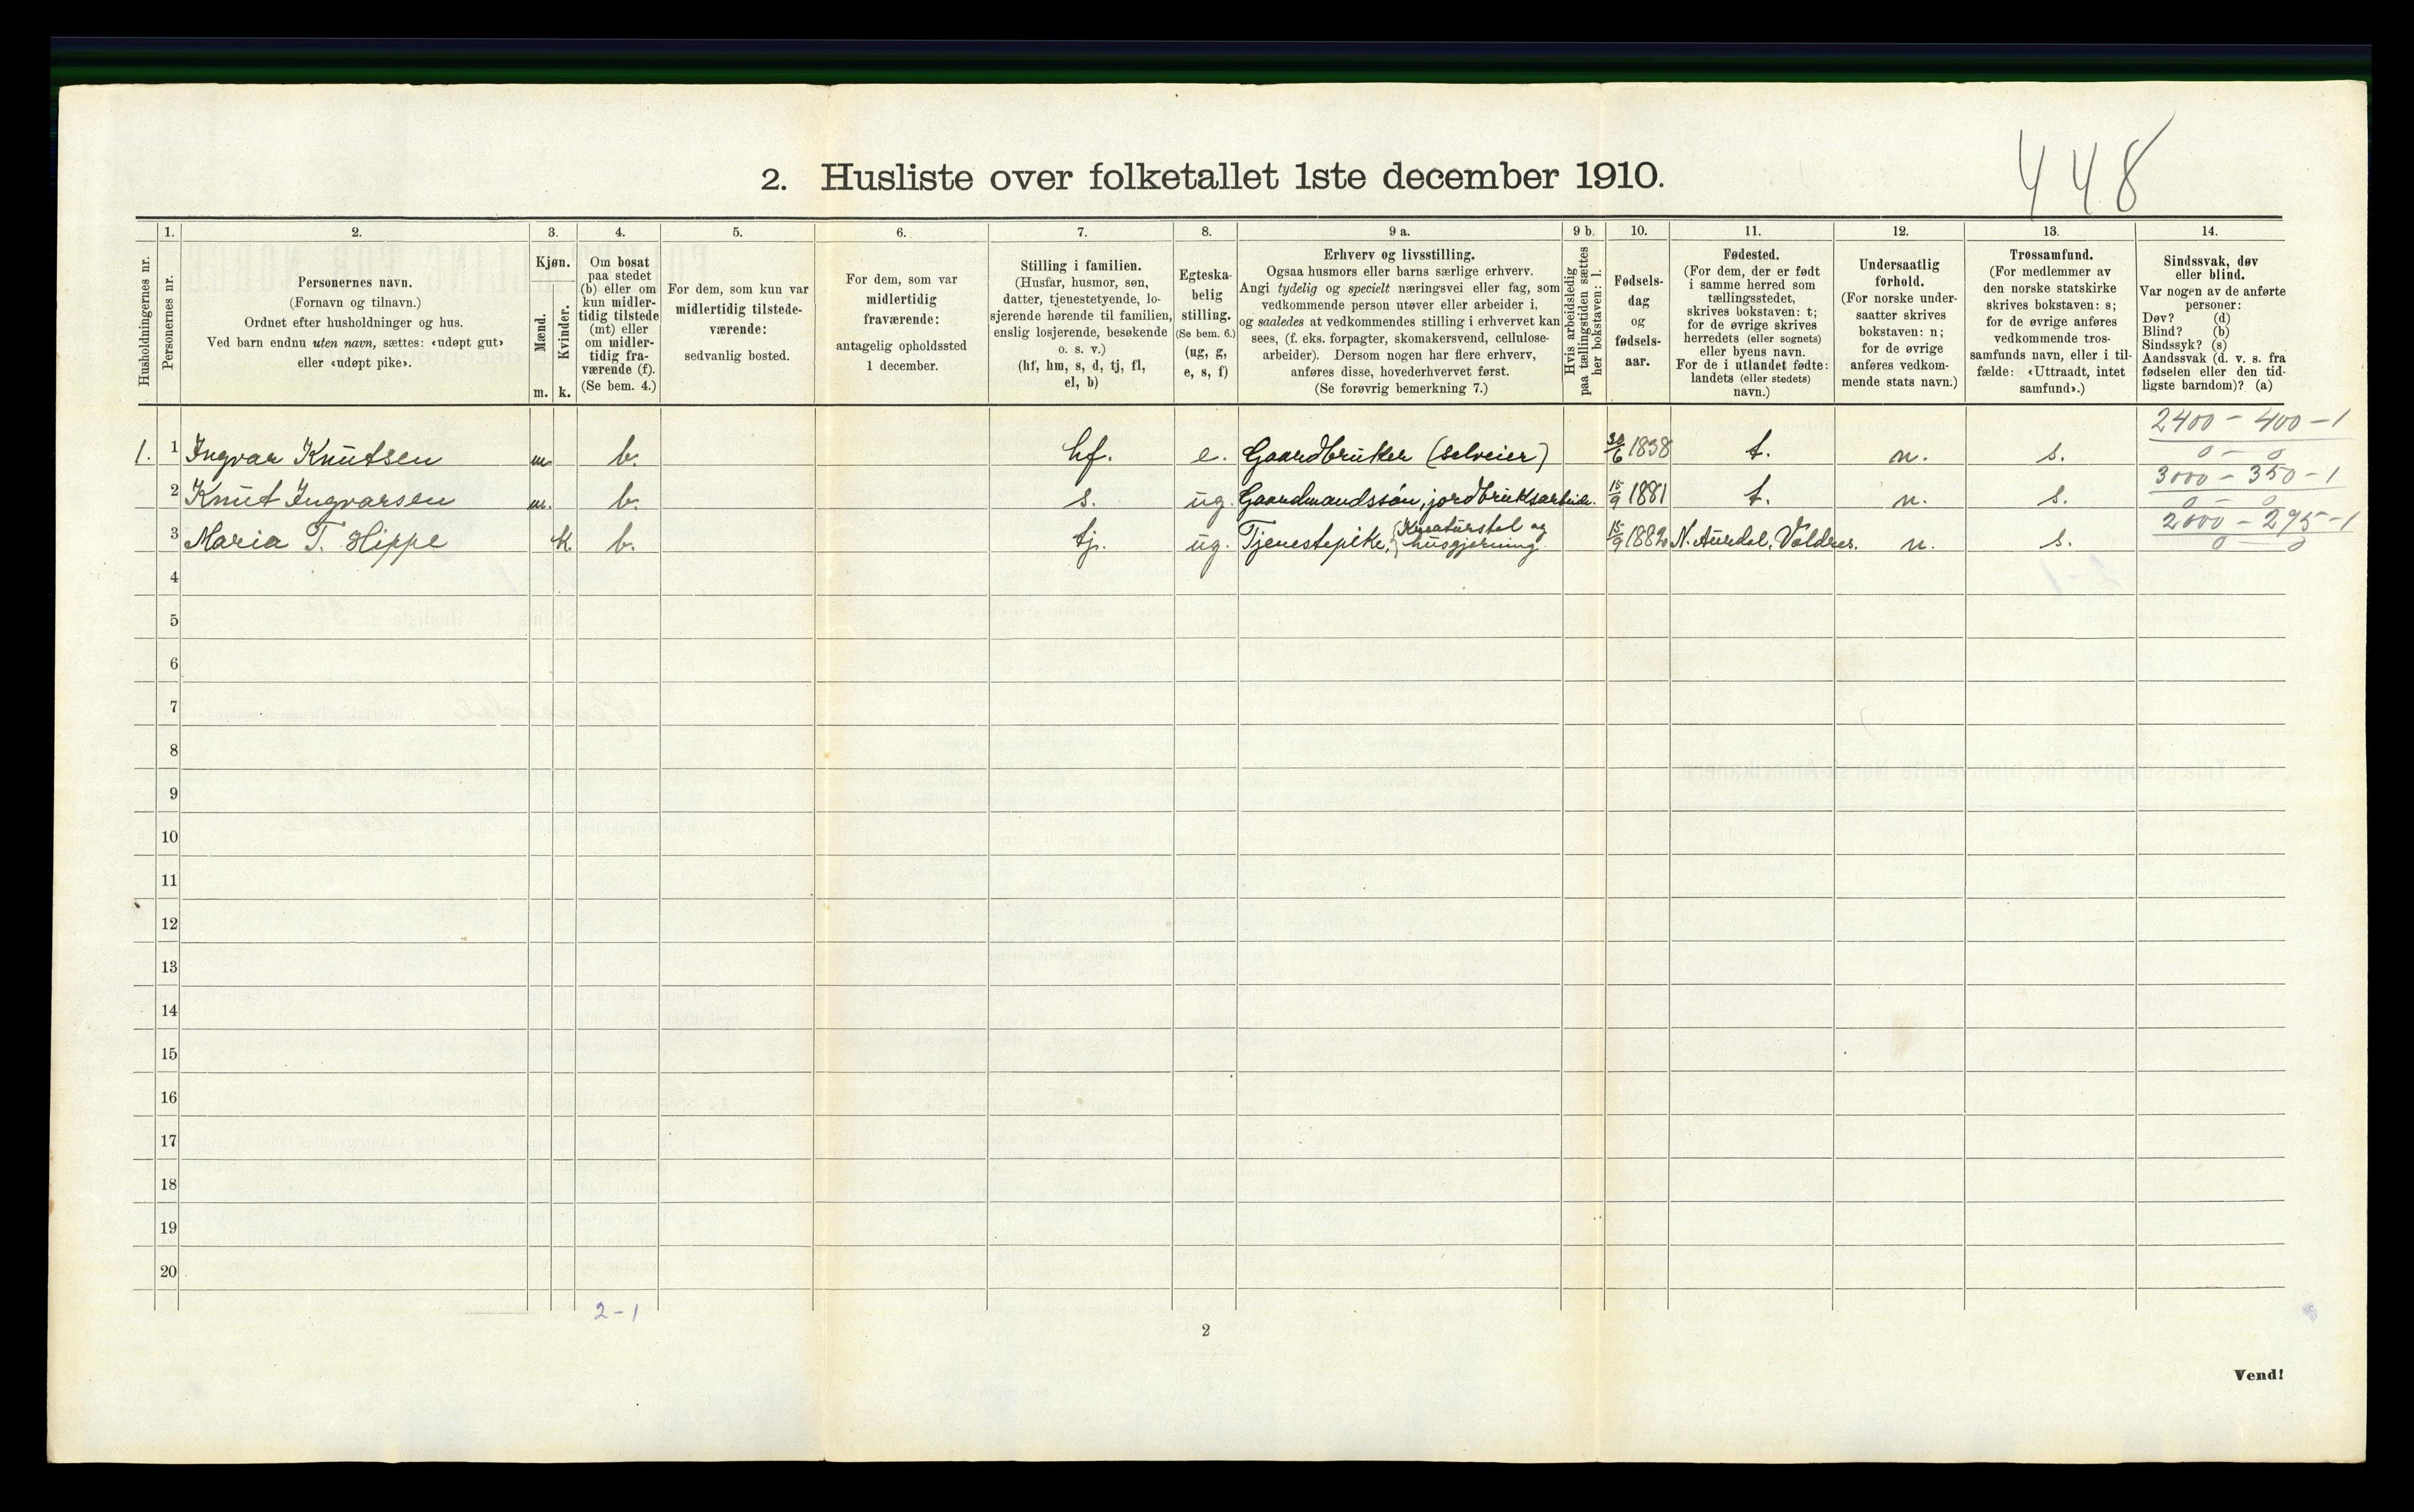 448
2. Husliste over folketallet 1ste december 1910.
1. 2. 3. 4. 5. 6. 7. 8. 9 a. 9 b. 10. 11. 12. 13. 14.
Husholdningernes nr.
Personernes nr.
Personernes navn.
(Fornavn og tilnavn.)
Ordnet efter husholdninger og hus.
Ved barn endnu uten navn, sættes: «udøpt gut»
eller «udøpt pike».
Kjøn.
Mænd.
Kvinder.
m. k.
Om bosat
paa stedet
(b) eller om
kun midler-
tidig tilstede
(mt) eller
om midler-
tidig fra-
værende (f).
(Se bem. 4.)
For dem, som kun var
midlertidig tilstede-
værende:
sedvanlig bosted.
For dem, som var
midlertidig
fraværende:
antagelig opholdssted
1 december.
Stilling i familien.
(Husfar, husmor, søn,
datter, tjenestetyende, lo-
sjerende hørende til familien,
enslig losjerende, besøkende
o. s. v.)
(hf, hm, s, d, tj, fl,
el, b)
Egteska-
belig
stilling.
(Se bem. 6.)
(ug, g,
e, s, f)
Erhverv og livsstilling.
Ogsaa husmors eller barns særlige erhverv.
Angi tydelig og specielt næringsvei eller fag, som
vedkommende person utøver eller arbeider i,
og saaledes at vedkommendes stilling i erhvervet kan
sees, (f. eks. forpagter, skomakersvend, cellulose-
arbeider). Dersom nogen har flere erhverv,
anføres disse, hovederhvervet først.
(Se forøvrig bemerkning 7.)
Hvis arbeidsledig
paa tællingstiden sættes
her bokstaven: l.
Fødsels-
dag
og
fødsels-
aar.
Fødested.
(For dem, der er født
i samme herred som
tællingsstedet,
skrives bokstaven: t;
for de øvrige skrives
herredets (eller sognets)
eller byens navn.
For de i utlandet fødte:
landets (eller stedets)
navn.)
Undersaatlig
forhold.
(For norske under-
saatter skrives
bokstaven: n;
for de øvrige
anføres vedkom-
mende stats navn.)
Trossamfund.
(For medlemmer av
den norske statskirke
skrives bokstaven: s;
for de øvrige anføres
vedkommende tros-
samfunds navn, eller i til-
fælde: «Uttraadt, intet
samfund».)
Sindssvak, døv
eller blind.
Var nogen av de anførte
personer:
Døv? (d)
Blind? (b)
Sindssyk? (s)
Aandssvak (d. v. s. fra
fødselen eller den tid-
ligste barndom)? (a)
2400 - 400 - 1
1. 1 Ingvar Knutsen m. b. hf. e. Gaardbruker (selveier) 30/6 1838 t. n. s. 0 - 0
3000 - 350 - 1
2 Knut Ingvarsen m. b. s. ug. Gaardmandssøn, jordbruksarbeide. 15/9 1881 t. n. s. 0 - 0
2000 - 295 - 1
3 Maria T. Hippe k. b. tj. ug. Tjenestepike, {Kreaturstel og husgjerning. 15/9 1882 N. Aurdal, Valdres. n. s. 0 - 0
4
5
6
7
8
9
10
11
12
13
14
15
16
17
18
19
20
2-1
2
Vend!